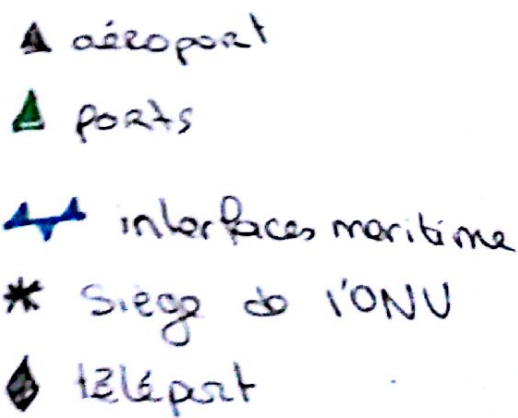 aéroport
ports
interfaces maritime
Siège de l'ONU
téléport